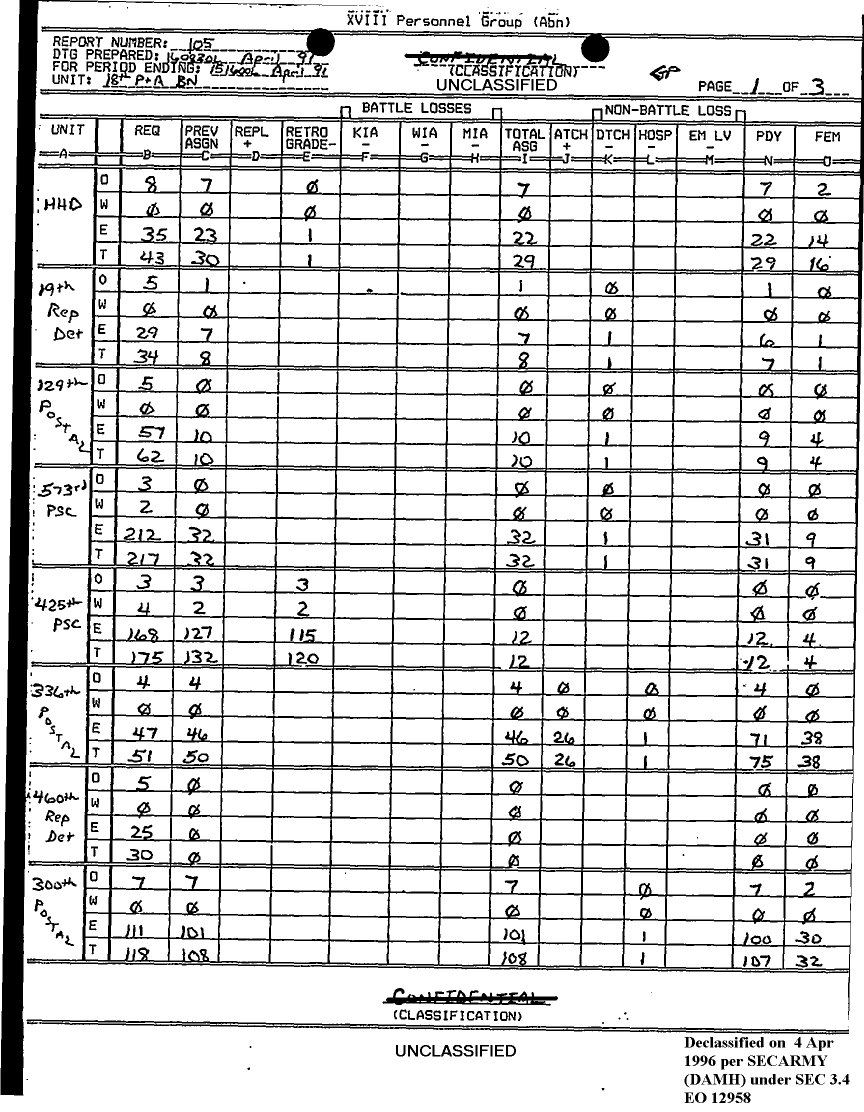 XVIII Personnel Group (Abn)
REPORT NUMBER: 105
DTG PREPARED: April 91
FOR PERIOD ENDING: 151600L April 91
UNIT: 18th P+A BN
CONFIDENTIAL
(CLASSIFICATION)
UNCLASSIFIED
PAGE 1 OF 3
BATTLE LOSSES NON-BATTLE LOSS
UNIT REQ PREV ASGN REPL + RETRO GRADE- KIA - WIA - MIA - TOTAL ASG ATCH + DTCH - HOSP - EM LV - PDY FEM
A B C D E F G H I J K L M N O
HHD
O 8 7 Ø 7 7 2
W Ø Ø Ø Ø Ø Ø
E 35 23 1 22 22 14
T 43 30 1 29 29 16
19th Rep Det
O 5 1 1 Ø 1 Ø
W Ø Ø Ø Ø Ø Ø
E 29 7 7 1 6 1
T 34 8 8 1 7 1
129th POSTAL
O 5 Ø Ø Ø Ø Ø
W Ø Ø Ø Ø Ø Ø
E 57 10 10 1 9 4
T 62 10 10 1 9 4
573rd PSC
O 3 Ø Ø Ø Ø Ø
W 2 Ø Ø Ø Ø Ø
E 212 32 32 1 31 9
T 217 32 32 1 31 9
425th PSC
O 3 3 3 Ø Ø Ø
W 4 2 2 Ø Ø Ø
E 168 127 115 12 12 4
T 175 132 120 12 12 4
336th POSTAL
O 4 4 4 Ø Ø 4 Ø
W Ø Ø Ø Ø Ø Ø Ø
E 47 46 46 26 1 71 38
T 51 50 50 26 1 75 38
460th Rep Det
O 5 Ø Ø Ø Ø
W Ø Ø Ø Ø Ø
E 25 Ø Ø Ø Ø
T 30 Ø Ø Ø Ø
300th POSTAL
O 7 7 7 Ø 7 2
W Ø Ø Ø Ø Ø Ø
E 111 101 101 1 100 30
T 118 108 108 1 107 32
CONFIDENTIAL
(CLASSIFICATION)
UNCLASSIFIED
Declassified on 4 Apr
1996 per SECARMY
(DAMH) under SEC 3.4
EO 12958